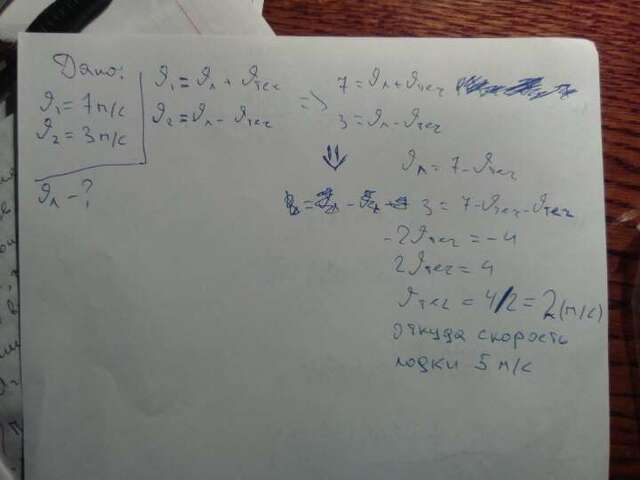 Дано:
υ₁ = 7 м/с
υ₂ = 3 м/с
υл - ?
υ₁ = υл + υтеч
υ₂ = υл - υтеч
=>
7 = υл + υтеч
3 = υл - υтеч
⇓
υл = 7 - υтеч
3 = 7 - υтеч - υтеч
-2υтеч = -4
2υтеч = 4
υтеч = 4/2 = 2 (м/с)
откуда скорость
лодки 5 м/с